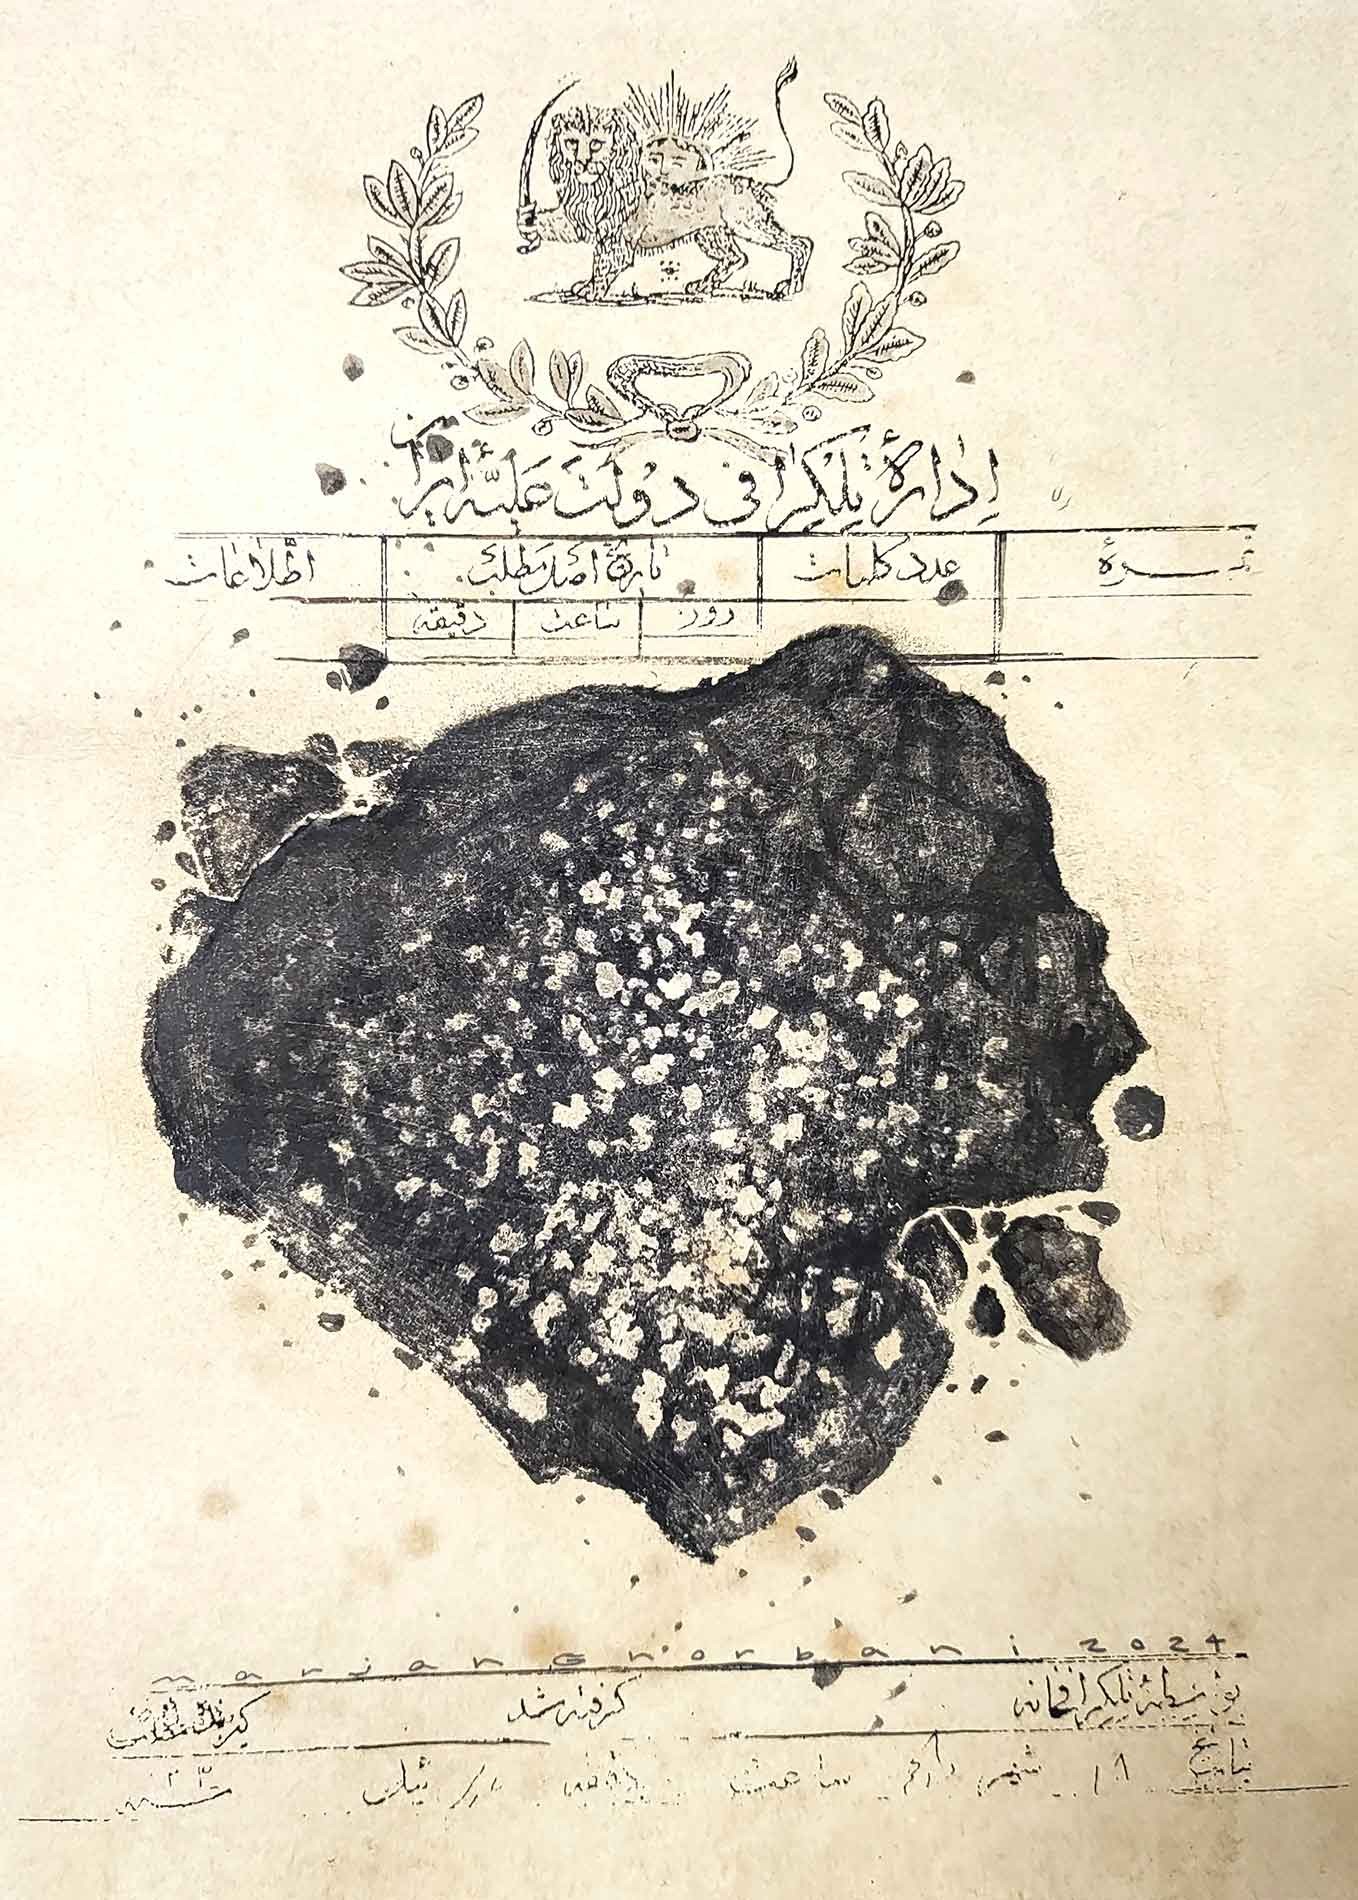 اداره تلگرافی دولت علیّه ایران
نمره عدد کلمات تاریخ اصل مطلب اطلاعات
روز ساعت دقیقه
marjan Ghorbani 2024
بواسطه تلگرافخانه گرفته شد
بتاریخ ١٨ شهر